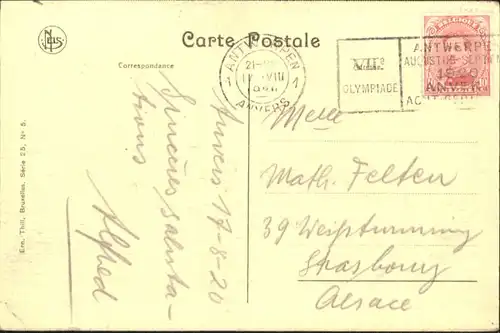 NELS
Carte Postale
Correspondance
ANTWERPEN
1 1
21-
VIII
ANVERS
VIIe
OLYMPIADE
ANTWERPEN
AUGUSTUS-SEPTEM
1920
ANVERS
Anvers 17-8-20
Sincères saluta-
tions
Alfred
Melle
Math. Felten
39 Weißturmring
Strasbourg
Alsace
Ern. Thill, Bruxelles. Série 25, No 5.